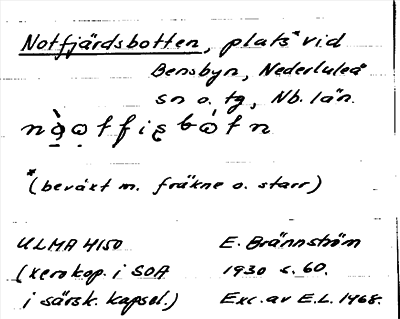 Notfjärdsbotten, plats* vid
Bensbyn, Nederluleå
sn o. tg, Nb. län.
*(beväxt m. fräkne o. starr)
ULMA 4150 E. Brännström
(xerokop. i SOA 1930 s. 60.
i särsk. kapsel.) Exc. av E.L. 1968.